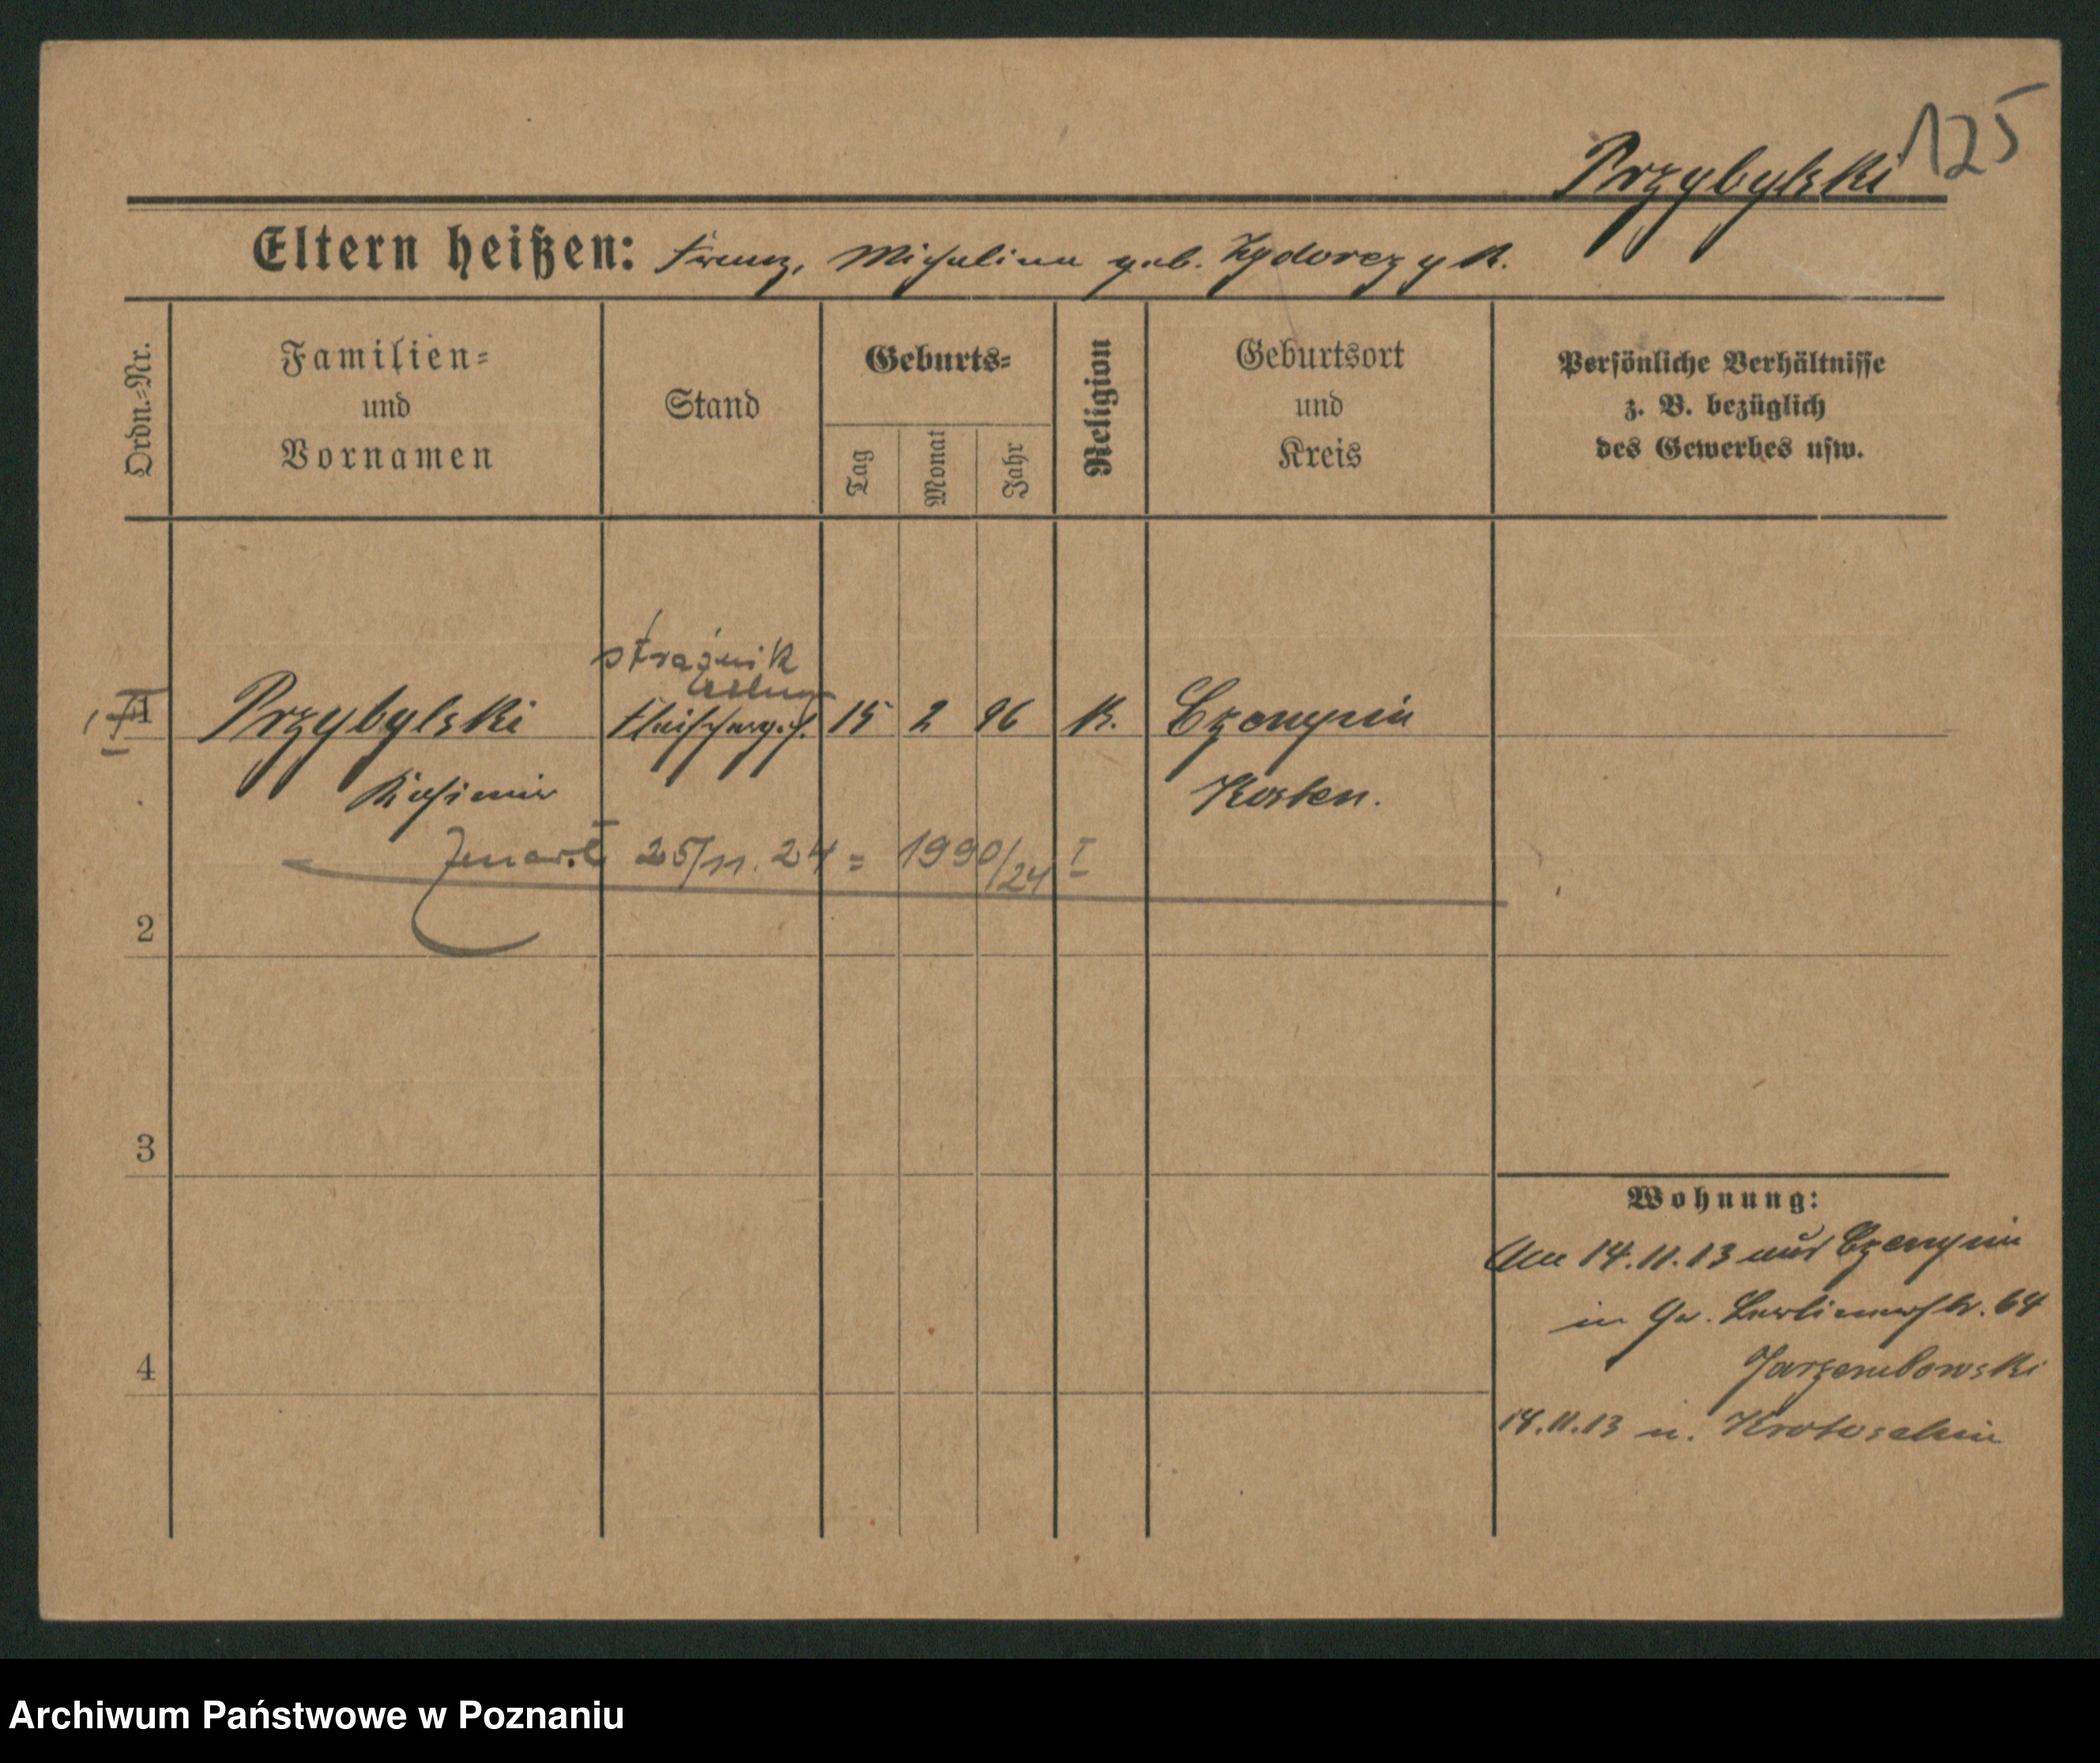 125
Przybylski
Eltern heißen: Franz, Michalina geb. Zydorczyk.
Ordn.-Nr.
Familien-
und
Vornamen
Stand
Geburts-
Tag
Monat
Jahr
Religion
Geburtsort
und
Kreis
Persönliche Verhältnisse
z. B. bezüglich
des Gewerbes usw.
strażnik
1 Przybylski Fleischerges. 15 2 96 K. Czempin
Kasimir Kosten.
Zmarł 25/11. 24 = 1990/24 I
2
3
4
Wohnung:
Am 14.11.13 aus Czempin
in Gr. Berlinerstr. 64
Jarzembowski
14.11.13 n. Krotoschin
Archiwum Państwowe w Poznaniu